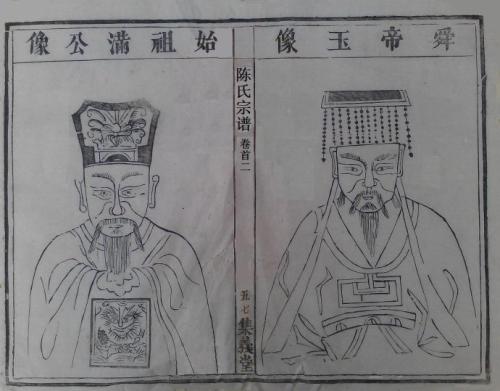 舜帝玉像
陈氏宗谱
卷首二
丑七
集義堂
始祖滿公像